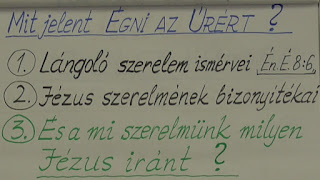 Mit jelent ÉGNI AZ ÚRÉRT ?
1. Lángoló szerelem ismérvei Én.É.8:6
2. Jézus szerelmének bizonyítékai
3. És a mi szerelmünk milyen
Jézus iránt ?